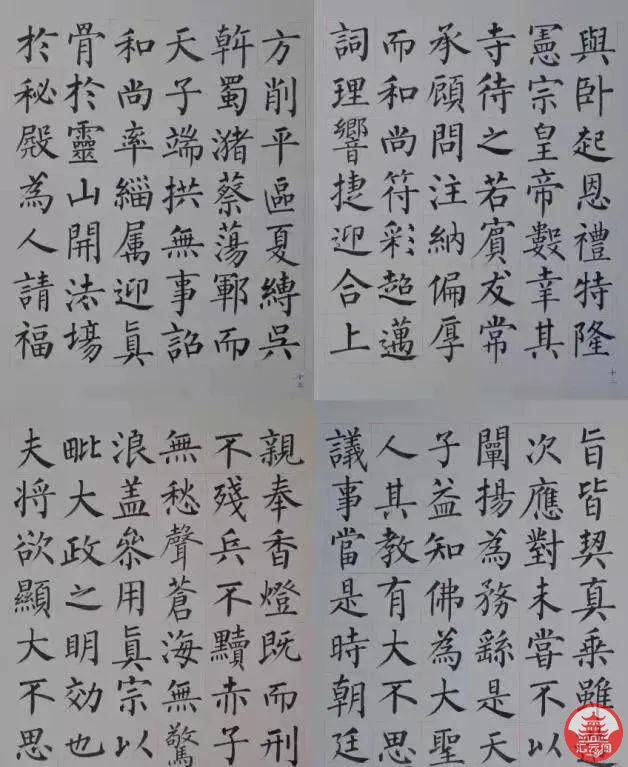 與臥起恩禮特隆
憲宗皇帝數幸其
寺待之若賓友常
承顧問注納偏厚
而和尚符彩超邁
詞理響捷迎合上
旨皆契真乘雖
次應對未嘗不以
闡揚為務繇是天
子益知佛為大聖
人其教有大不思
議事當是時朝廷
方削平區夏縛吳
斡蜀瀦蔡蕩鄆而
天子端拱無事詔
和尚率緇属迎真
骨於靈山開法場
於秘殿為人請福
親奉香燈既而刑
不殘兵不黷赤子
無愁聲蒼海無驚
浪盖參用真宗以
毗大政之明効也
夫將欲顯大不思